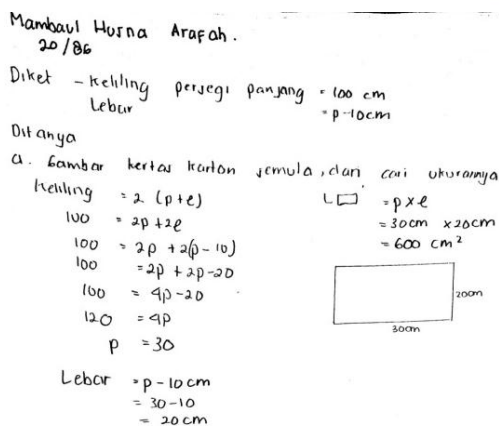 Mambaul Husna Arafah.
20/86
Diket - Keliling persegi panjang = 100 cm
Lebar = p-10cm
Ditanya
a. Gambar kertas karton semula, dan cari ukurannya
Keliling = 2 (p+l)
100 = 2p + 2l
100 = 2p + 2(p-10)
100 = 2p + 2p-20
100 = 4p-20
120 = 4p
p = 30
Lebar = p-10 cm
= 30-10
= 20 cm
L▭ = p x l
= 30cm x 20cm
= 600 cm²
20cm
30cm